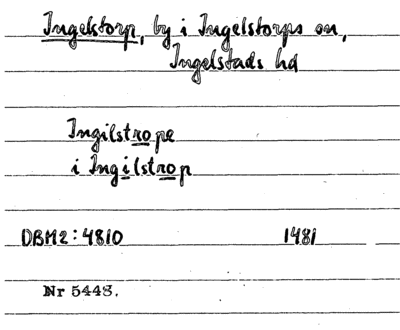 Ingelstorp, by i Ingelstorps sn,
Ingelstads hd
Ingilstrope
i Ingilstrop
DBM2:4810 1481
Nr 5448.